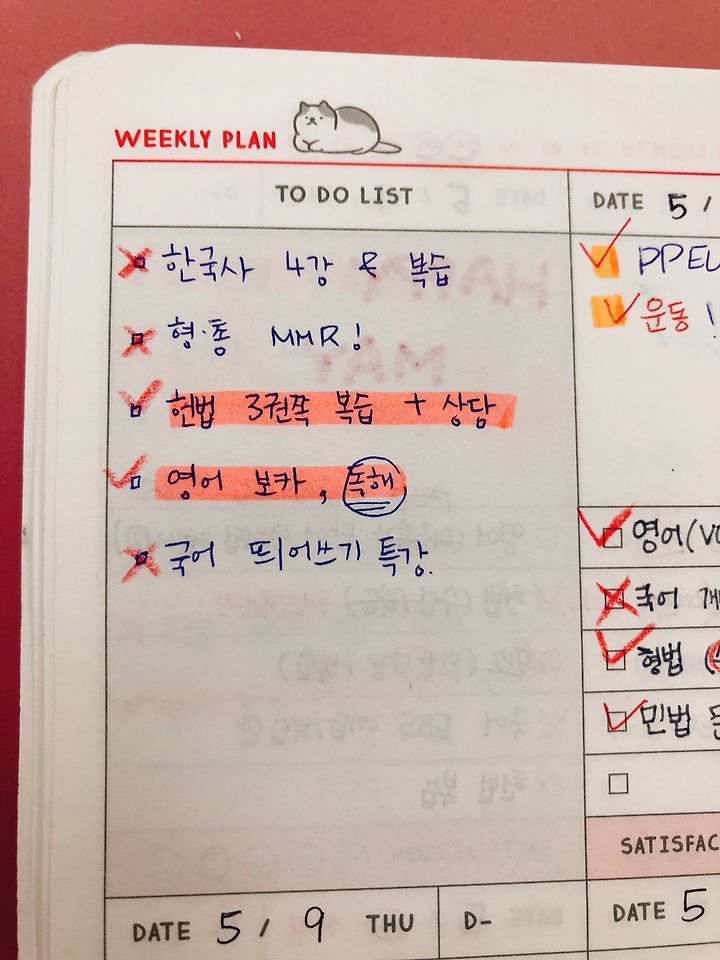 WEEKLY PLAN
TO DO LIST
한국사 4강 & 복습
형·통 MMR!
헌법 3권쪽 복습 + 상담
영어 보카, 독해
국어 띄어쓰기 특강.
DATE 5 / 9 THU D-
DATE 5 /
운동!
영어(
국어
형법 (
민법
SATISFAC
DATE 5